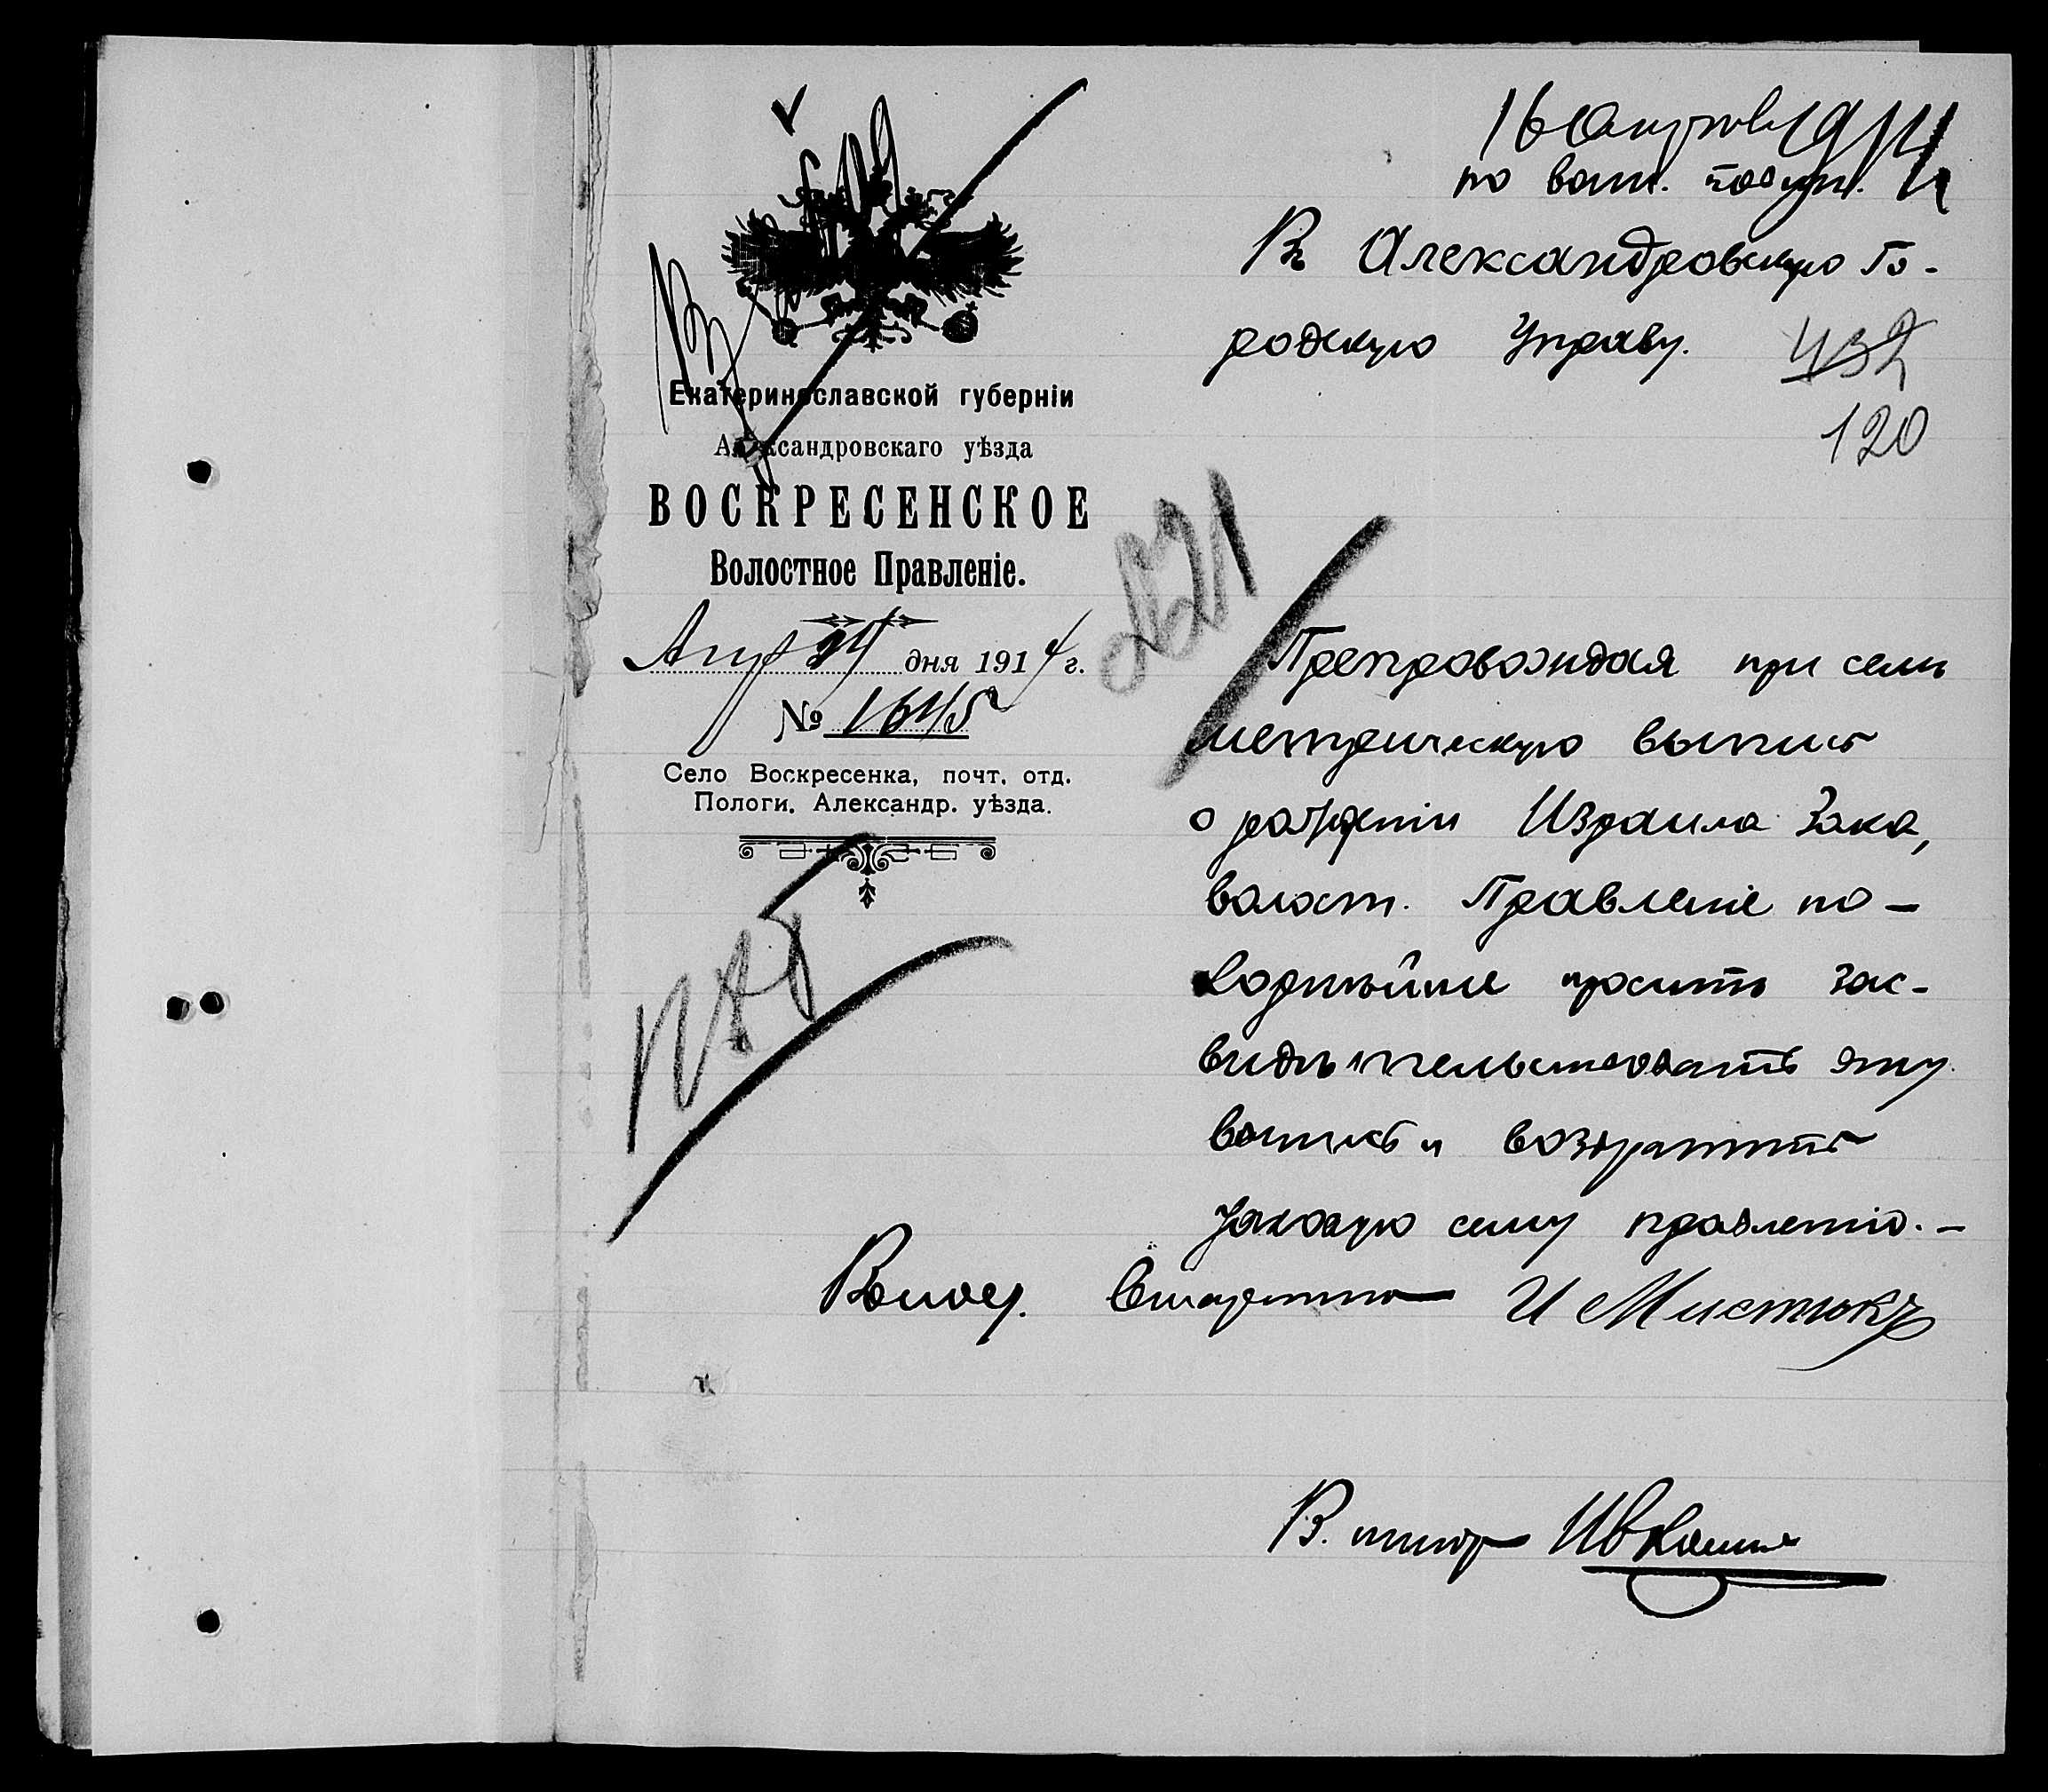 16 Апрѣл 1914
по воин. повин.
Въ Александровскую Го-
родскую Управу.
432
120
Екатеринославской губерніи
Александровскаго уѣзда
ВОСКРЕСЕНСКОЕ
Волостное Правленіе.
дня 1914 г.
№ 1645
Село Воскресенка, почт. отд.
Пологи, Александр. уѣзда.
Препровождая при семъ
метрическую выпись
о рожденіи Израиля Зака,
волост. Правленіе по-
корнѣйше проситъ зас-
видѣтельствовать эту
выпись и возвратить
таковую сему правленію.-
Волос. Старшина И Мистюкъ
В. писар